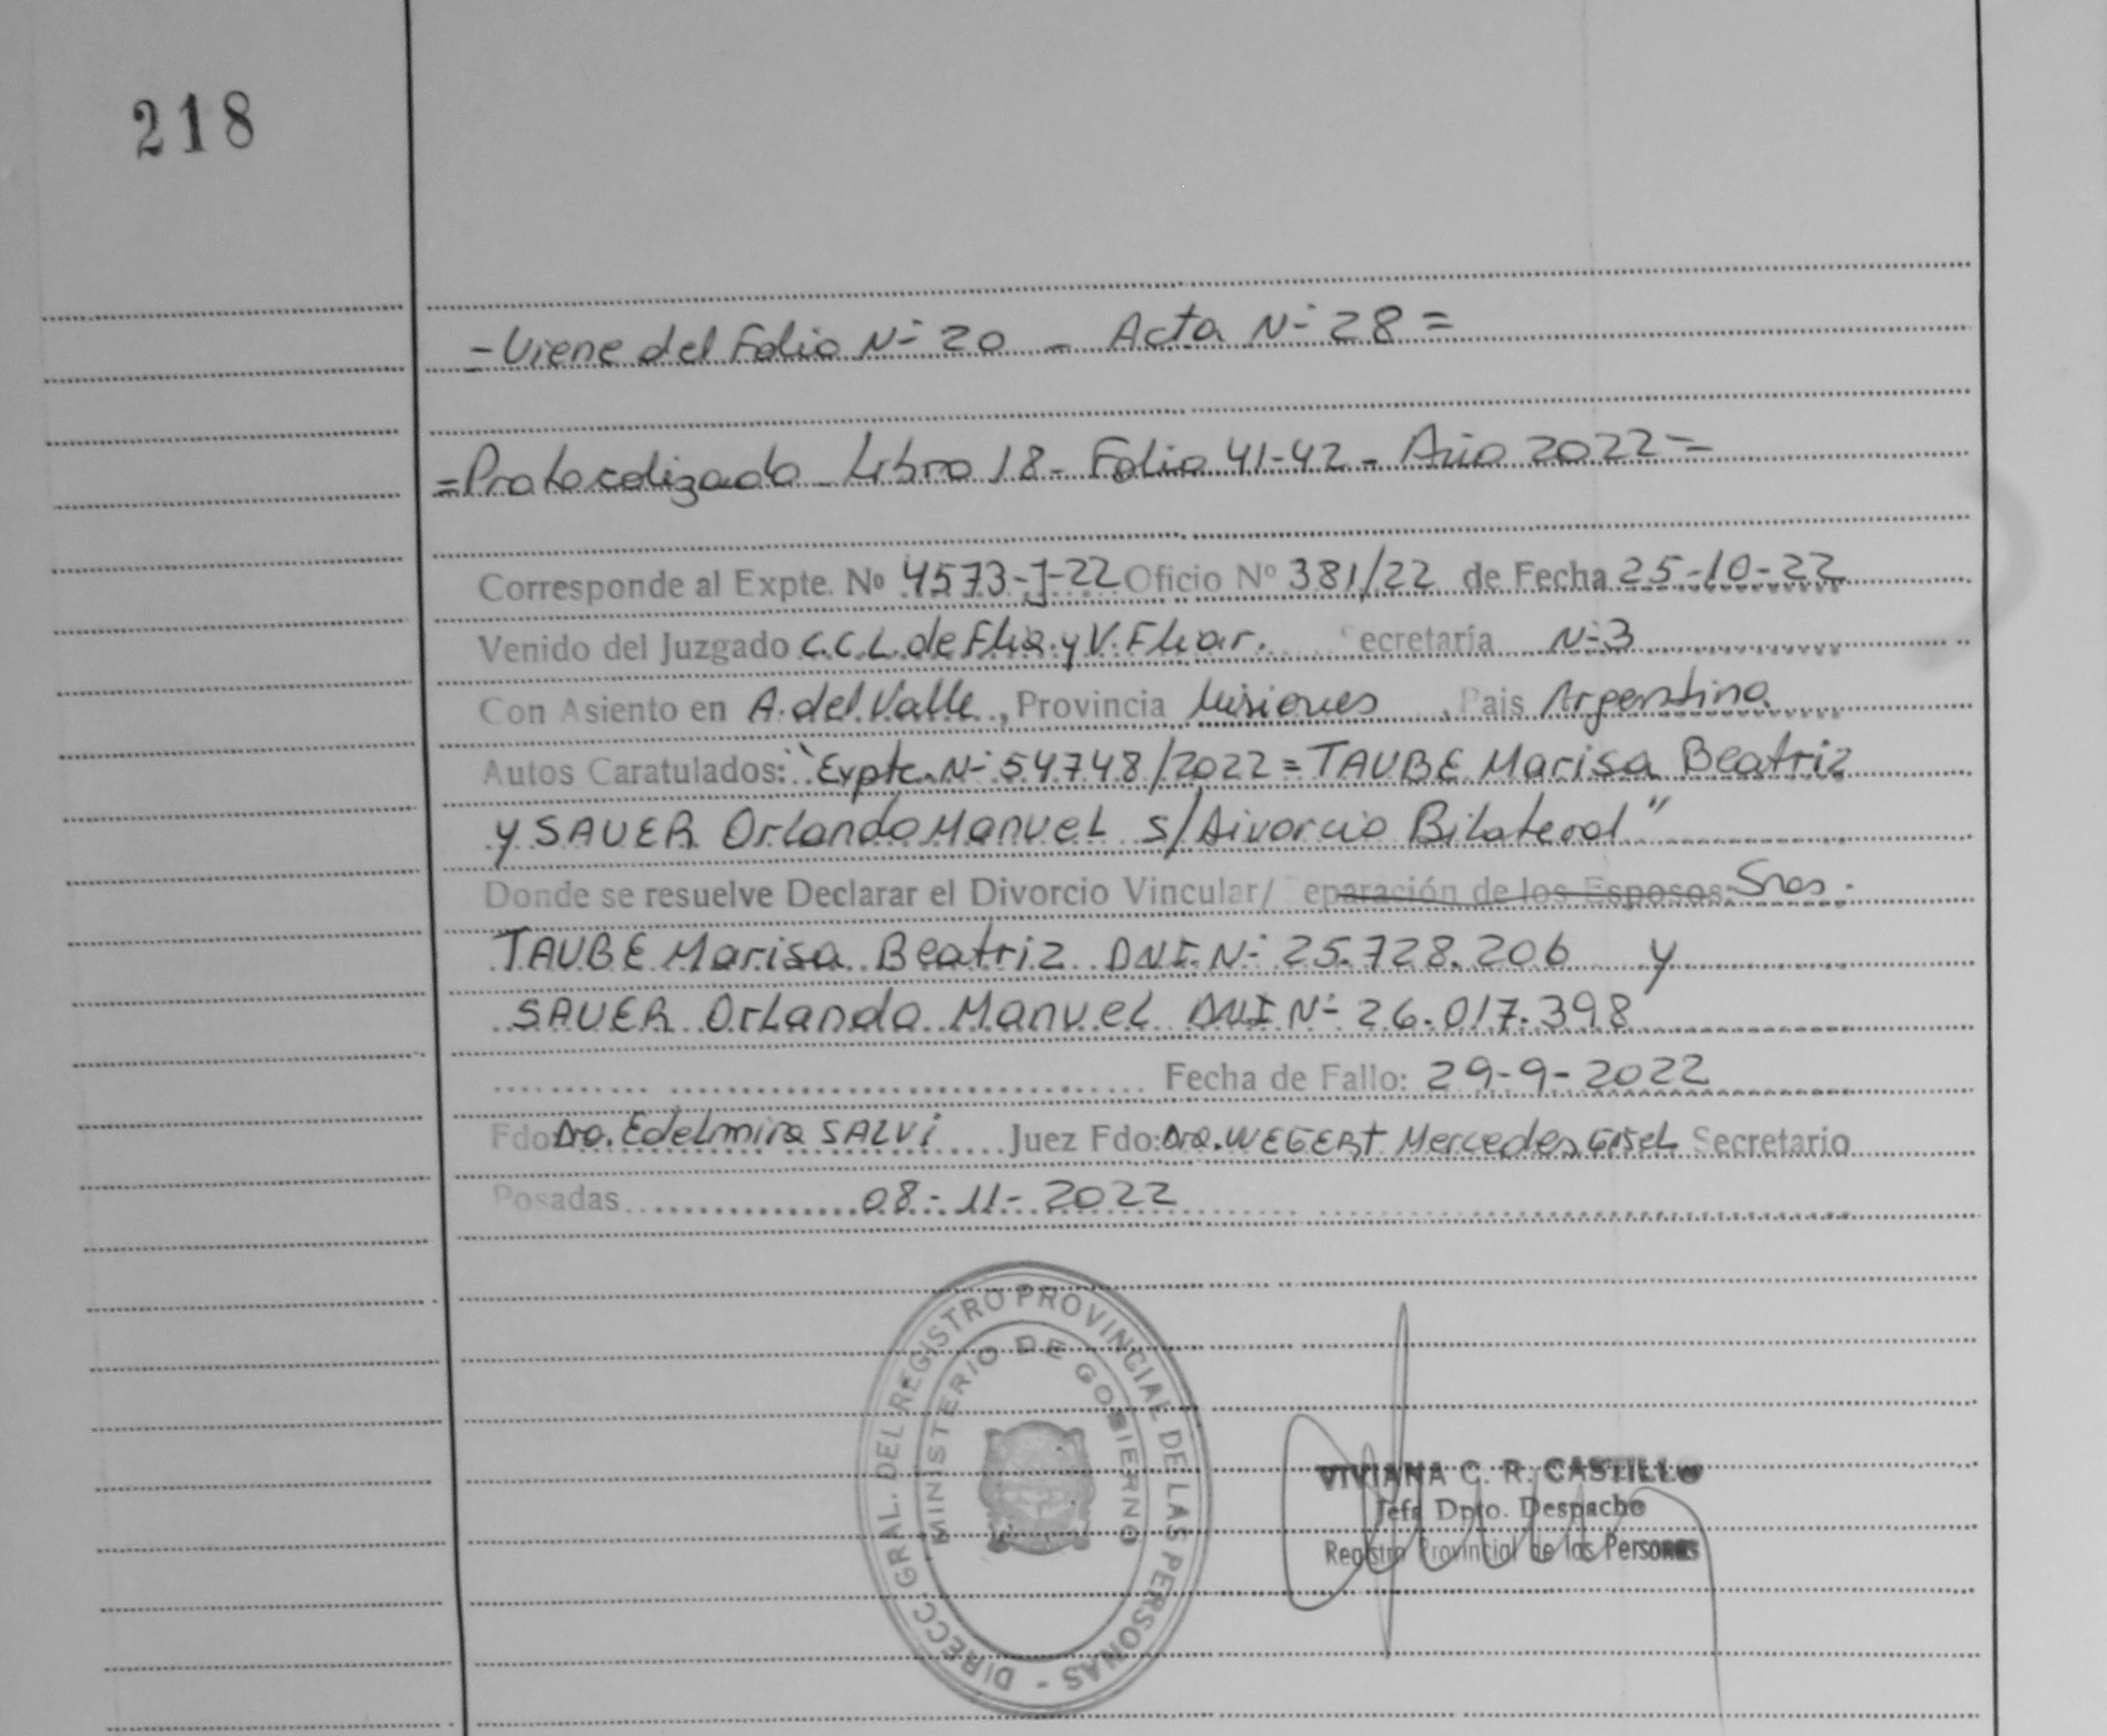 218
- Viene del Folio Nº 20 - Acta Nº 28 =
= Protocolizado - Libro 18 - Folio 41-42 - Año 2022 =
Corresponde al Expte. Nº 4573-J-22 Oficio Nº 381/22 de Fecha 25-10-22
Venido del Juzgado C.C.L. de Flia. y V. Fliar. ecretaría Nº 3
Con Asiento en A. del Valle, Provincia Misiones, Pais Argentina
Autos Caratulados: "Expte. Nº 54748/2022 = TAUBE Marisa Beatriz
y SAUER Orlando Manuel s/Divorcio Bilateral"
Donde se resuelve Declarar el Divorcio Vincular/ eparación de los Esposos: Sres.
TAUBE Marisa Beatriz DNI. Nº 25.728.206 y
SAUER Orlando Manuel DNI Nº 26.017.398
Fecha de Fallo: 29-9-2022
Fdo Dra. Edelmira SALVI Juez Fdo: Dra. WEGERT Mercedes Gisel Secretario
Posadas 08-11-2022
DIRECC. GRAL. DEL REGISTRO PROVINCIAL DE LAS PERSONAS -
MINISTERIO DE GOBIERNO
VIVIANA C. R. CASTILLO
Jefa Dpto. Despacho
Registro Provincial de las Personas